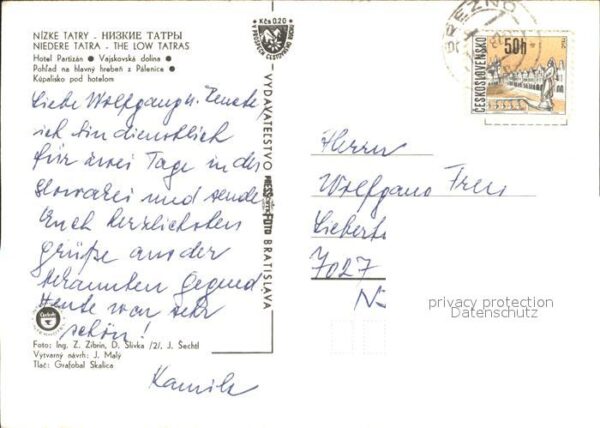 NÍZKE TATRY - НИЗКИЕ ТАТРЫ
NIEDERE TATRA - THE LOW TATRAS
Hotel Partizán ● Vajskovská dolina ●
Pohľad na hlavný hrebeň z Pálenice ●
Kúpalisko pod hotelom
Liebe Wolfgang u. Renate
ich bin dienstlich
für zwei Tage in der
Slowakei und sende
Euch herzlichsten
Grüße aus der
bekannten Gegend
Heute war sehr
schön!
Kamila
Foto: Ing. Z. Zibrín, D. Slivka /2/, J. Šechtl
Výtvarný návrh: J. Malý
Tlač: Grafobal Skalica
Kčs 0.20
VYDAVATEĽSTVO PRESSFOTO BRATISLAVA
BREZNO
ČESKOSLOVENSKO
50h
Herrn
Wolfgang
7027
privacy protection
Datenschutz